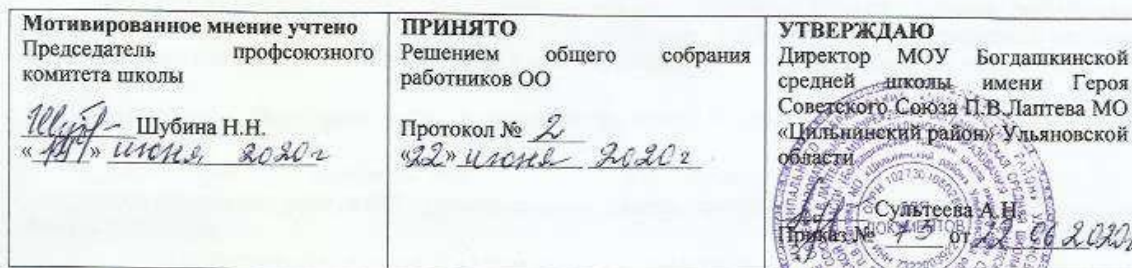 Мотивированное мнение учтено
Председатель профсоюзного
комитета школы
Шубина Н.Н.
июня 2020 г
ПРИНЯТО
Решением общего собрания
работников ОО
Протокол № 2
«22» июня 2020 г
УТВЕРЖДАЮ
Директор МОУ Богдашкинской
средней школы имени Героя
Советского Союза П.В.Лаптева МО
«Цильнинский район» Ульяновской
области
Сультеева А.Н.
Приказ № 73 от 22.06.2020г